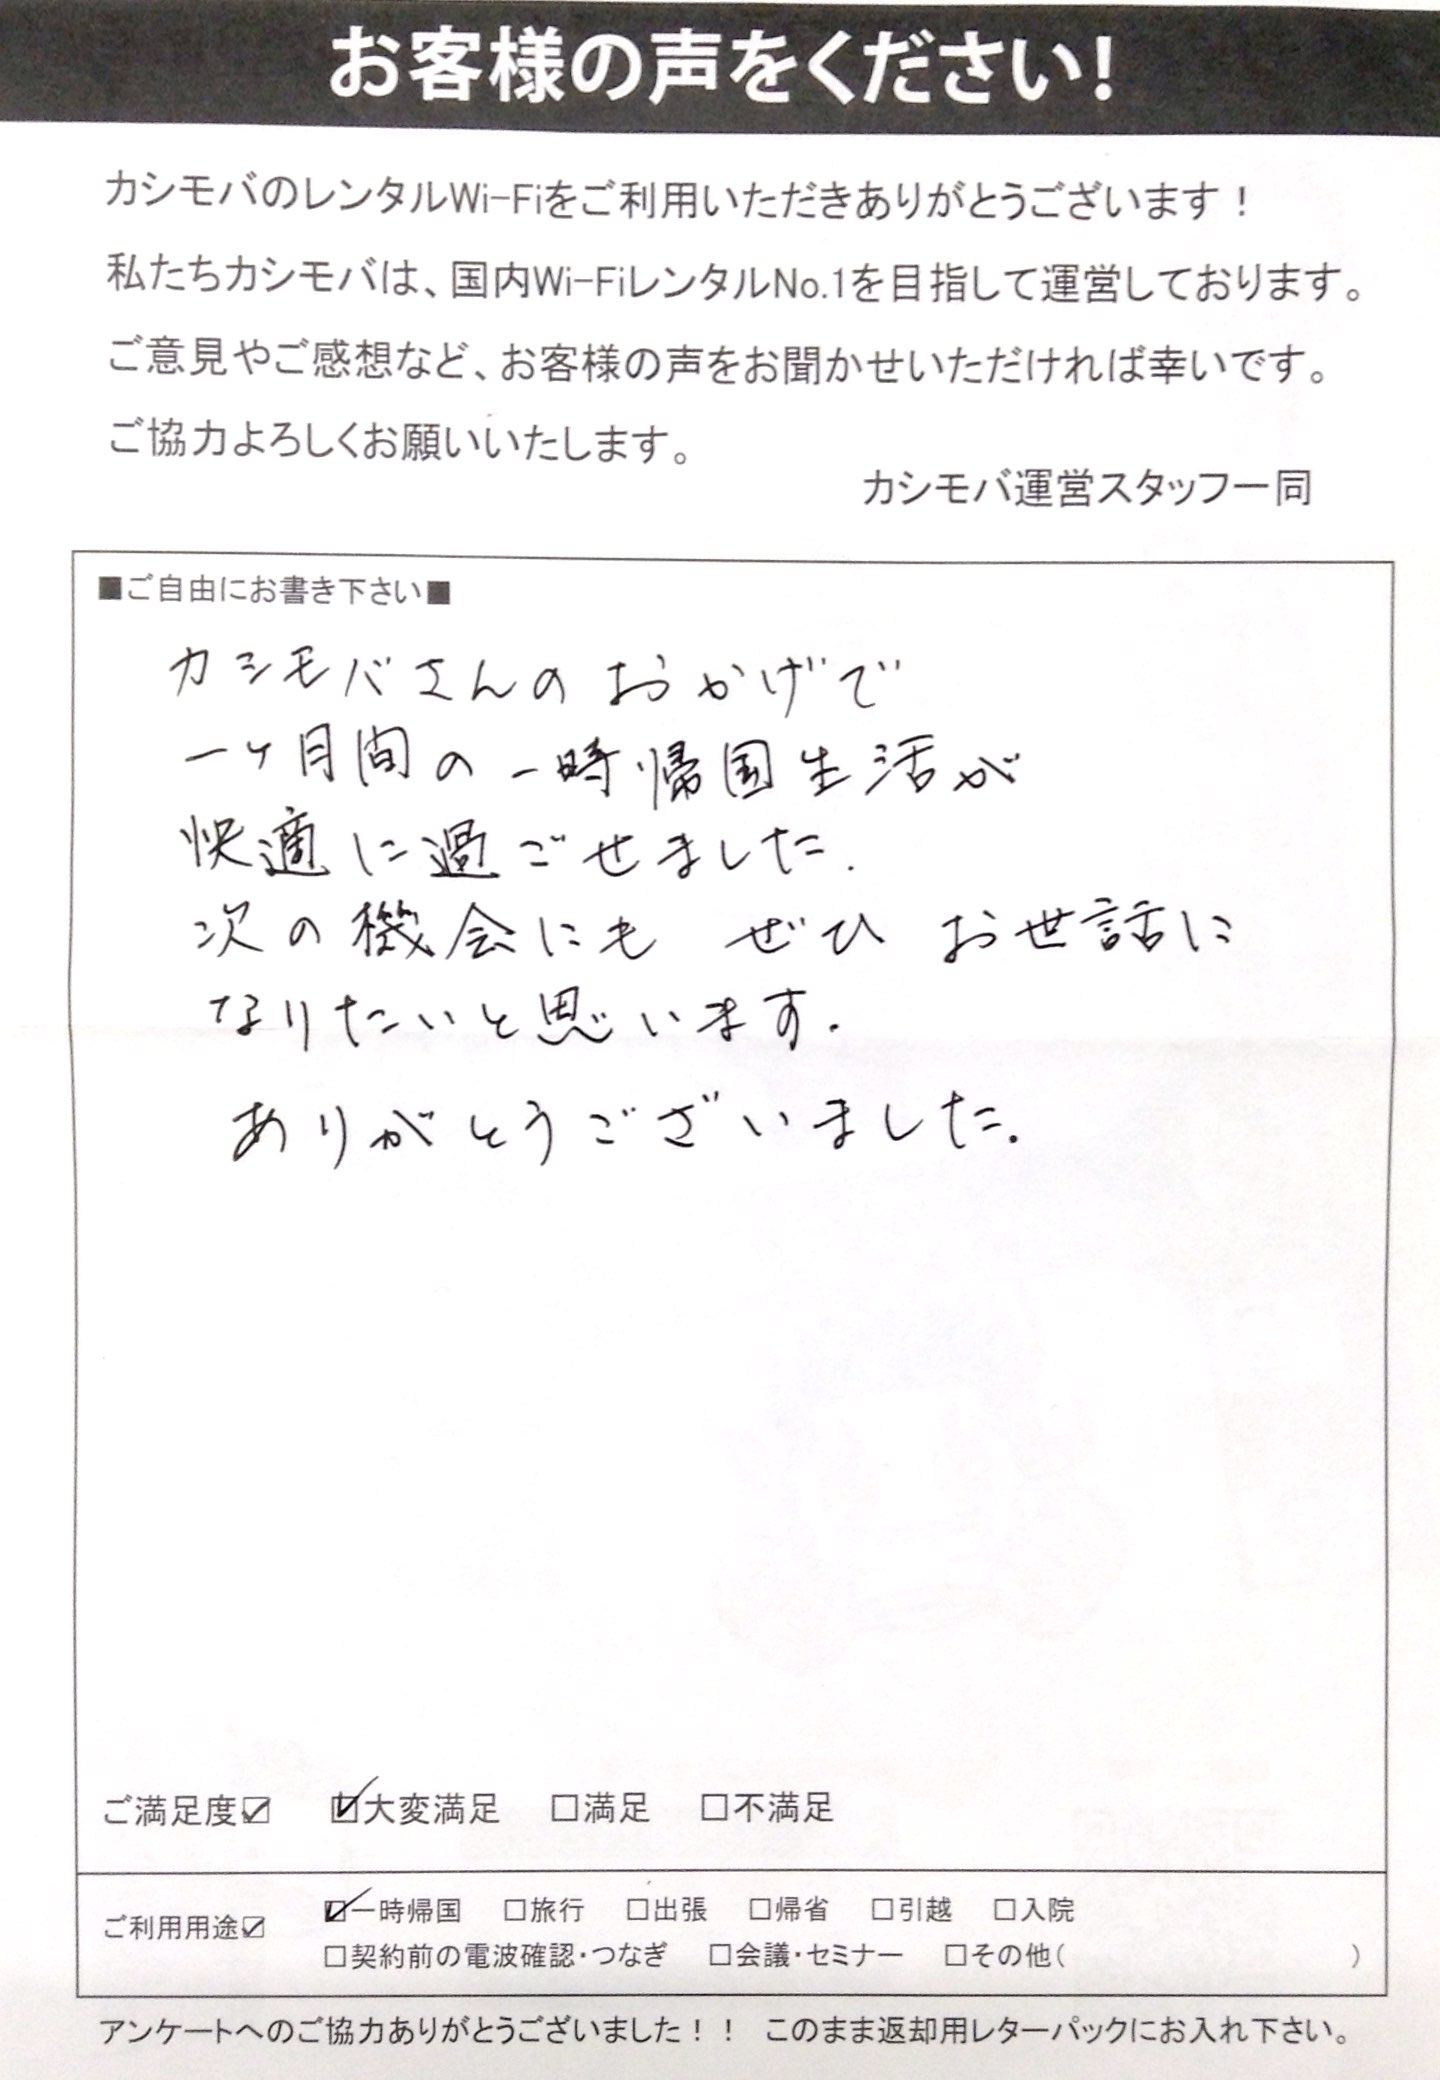 お客様の声をください!
カシモバのレンタルWi-Fiをご利用いただきありがとうございます！
私たちカシモバは、国内Wi-FiレンタルNo.1を目指して運営しております。
ご意見やご感想など、お客様の声をお聞かせいただければ幸いです。
ご協力よろしくお願いいたします。
カシモバ運営スタッフ一同
■ご自由にお書き下さい■
カシモバさんのおかげで
一ヶ月間の一時帰国生活が
快適に過ごせました.
次の機会にも ぜひ お世話に
なりたいと思います.
ありがとうございました.
ご満足度☑ ☑大変満足 □満足 □不満足
ご利用用途☑ ☑一時帰国 □旅行 □出張 □帰省 □引越 □入院
□契約前の電波確認・つなぎ □会議・セミナー □その他( )
アンケートへのご協力ありがとうございました！！ このまま返却用レターパックにお入れ下さい。